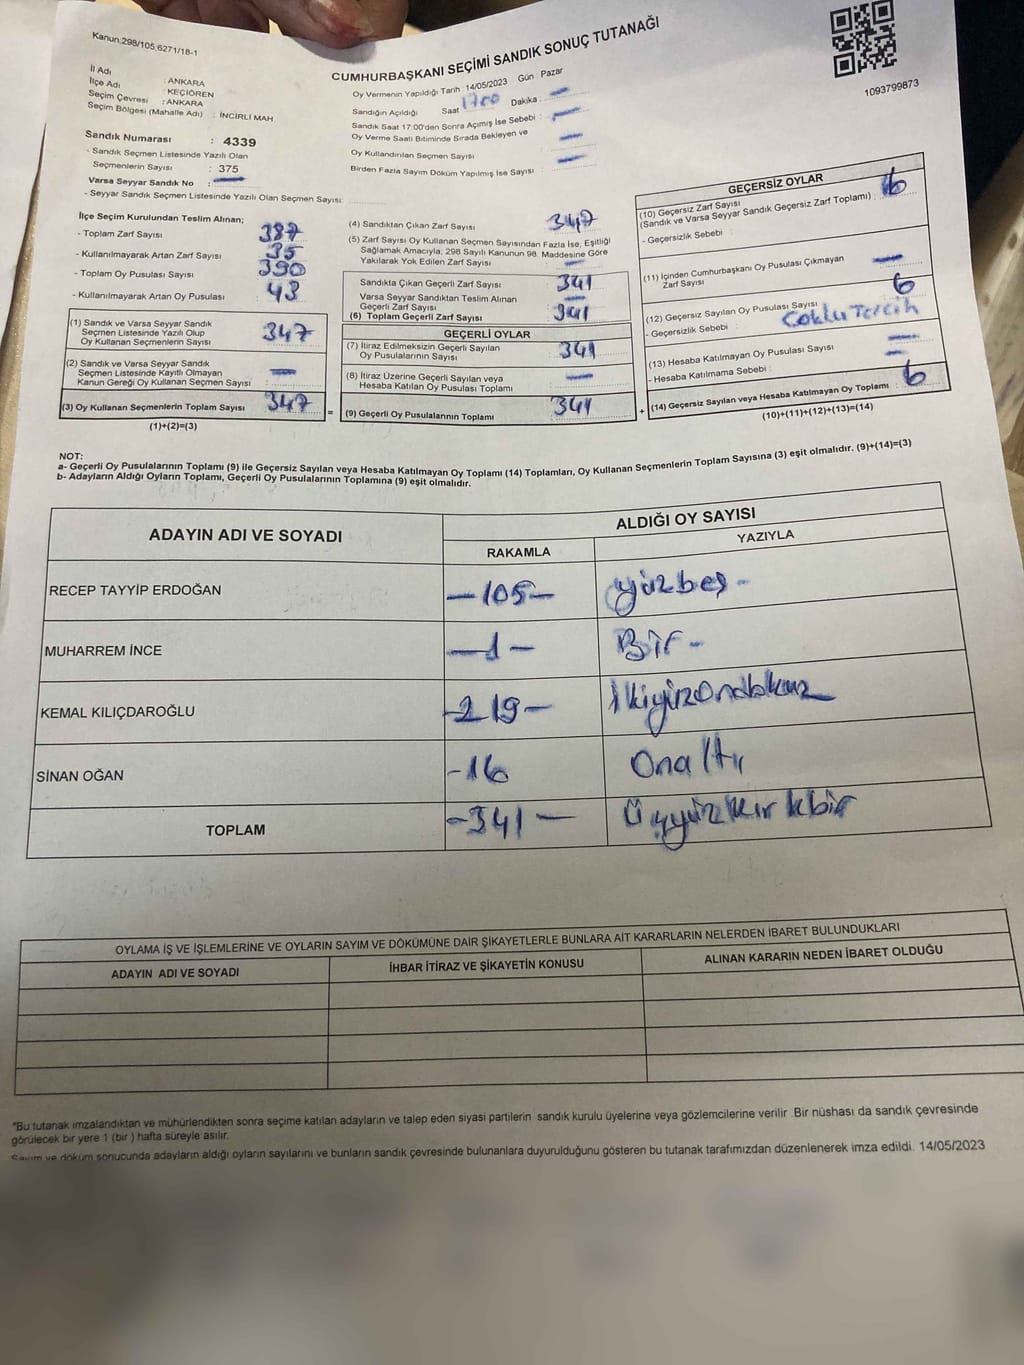 Kanun:298/105,6271/18-1
CUMHURBAŞKANI SEÇİMİ SANDIK SONUÇ TUTANAĞI
1093799873
İl Adı : ANKARA
İlçe Adı : KEÇİÖREN
Seçim Çevresi : ANKARA
Seçim Bölgesi (Mahalle Adı) : İNCİRLİ MAH.
Sandık Numarası : 4339
- Sandık Seçmen Listesinde Yazılı Olan
Seçmenlerin Sayısı : 375
Varsa Seyyar Sandık No : —
- Seyyar Sandık Seçmen Listesinde Yazılı Olan Seçmen Sayısı:
Oy Vermenin Yapıldığı Tarih : 14/05/2023 Gün : Pazar
Sandığın Açıldığı Saat 1700 Dakika : —
Sandık Saat 17:00'den Sonra Açımış İse Sebebi : —
Oy Verme Saati Bitiminde Sırada Bekleyen ve —
Oy Kullandırılan Seçmen Sayısı
Birden Fazla Sayım Döküm Yapılmış İse Sayısı —
İlçe Seçim Kurulundan Teslim Alınan;
- Toplam Zarf Sayısı : 387
- Kullanılmayarak Artan Zarf Sayısı : 35
- Toplam Oy Pusulası Sayısı : 390
- Kullanılmayarak Artan Oy Pusulası : 43
(1) Sandık ve Varsa Seyyar Sandık
Seçmen Listesinde Yazılı Olup
Oy Kullanan Seçmenlerin Sayısı : 347
(2) Sandık ve Varsa Seyyar Sandık
Seçmen Listesinde Kayıtlı Olmayan
Kanun Gereği Oy Kullanan Seçmen Sayısı : —
(3) Oy Kullanan Seçmenlerin Toplam Sayısı : 347
(1)+(2)=(3)
=
(4) Sandıktan Çıkan Zarf Sayısı : 347
(5) Zarf Sayısı Oy Kullanan Seçmen Sayısından Fazla İse, Eşitliği
Sağlamak Amacıyla; 298 Sayılı Kanunun 98. Maddesine Göre
Yakılarak Yok Edilen Zarf Sayısı : —
Sandıkta Çıkan Geçerli Zarf Sayısı : 341
Varsa Seyyar Sandıktan Teslim Alınan
Geçerli Zarf Sayısı : —
(6) Toplam Geçerli Zarf Sayısı : 341
GEÇERLİ OYLAR
(7) İtiraz Edilmeksizin Geçerli Sayılan
Oy Pusulalarının Sayısı : 341
(8) İtiraz Üzerine Geçerli Sayılan veya
Hesaba Katılan Oy Pusulası Toplamı : —
(9) Geçerli Oy Pusulalarının Toplamı : 341
+
GEÇERSİZ OYLAR
(10) Geçersiz Zarf Sayısı
(Sandık ve Varsa Seyyar Sandık Geçersiz Zarf Toplamı) :
- Geçersizlik Sebebi :
(11) İçinden Cumhurbaşkanı Oy Pusulası Çıkmayan
Zarf Sayısı : —
(12) Geçersiz Sayılan Oy Pusulası Sayısı : 6
- Geçersizlik Sebebi : Çoklu Tercih
(13) Hesaba Katılmayan Oy Pusulası Sayısı : —
- Hesaba Katılmama Sebebi : —
(14) Geçersiz Sayılan veya Hesaba Katılmayan Oy Toplamı : 6
(10)+(11)+(12)+(13)=(14)
NOT:
a- Geçerli Oy Pusulalarının Toplamı (9) ile Geçersiz Sayılan veya Hesaba Katılmayan Oy Toplamı (14) Toplamları, Oy Kullanan Seçmenlerin Toplam Sayısına (3) eşit olmalıdır. (9)+(14)=(3)
b- Adayların Aldığı Oyların Toplamı, Geçerli Oy Pusulalarının Toplamına (9) eşit olmalıdır.
ADAYIN ADI VE SOYADI ALDIĞI OY SAYISI
RAKAMLA YAZIYLA
RECEP TAYYİP ERDOĞAN —105— yüzbeş -
MUHARREM İNCE —1— Bir -
KEMAL KILIÇDAROĞLU -219- İkiyüzondokuz
SİNAN OĞAN -16 Onaltı
TOPLAM -341— Üçyüzkırkbir
OYLAMA İŞ VE İŞLEMLERİNE VE OYLARIN SAYIM VE DÖKÜMÜNE DAİR ŞİKAYETLERLE BUNLARA AİT KARARLARIN NELERDEN İBARET BULUNDUKLARI
ADAYIN ADI VE SOYADI İHBAR İTİRAZ VE ŞİKAYETİN KONUSU ALINAN KARARIN NEDEN İBARET OLDUĞU
*Bu tutanak imzalandıktan ve mühürlendikten sonra seçime katılan adayların ve talep eden siyasi partilerin sandık kurulu üyelerine veya gözlemcilerine verilir. Bir nüshası da sandık çevresinde
görülecek bir yere 1 (bir ) hafta süreyle asılır.
Sayım ve döküm sonucunda adayların aldığı oyların sayılarını ve bunların sandık çevresinde bulunanlara duyurulduğunu gösteren bu tutanak tarafımızdan düzenlenerek imza edildi. 14/05/2023